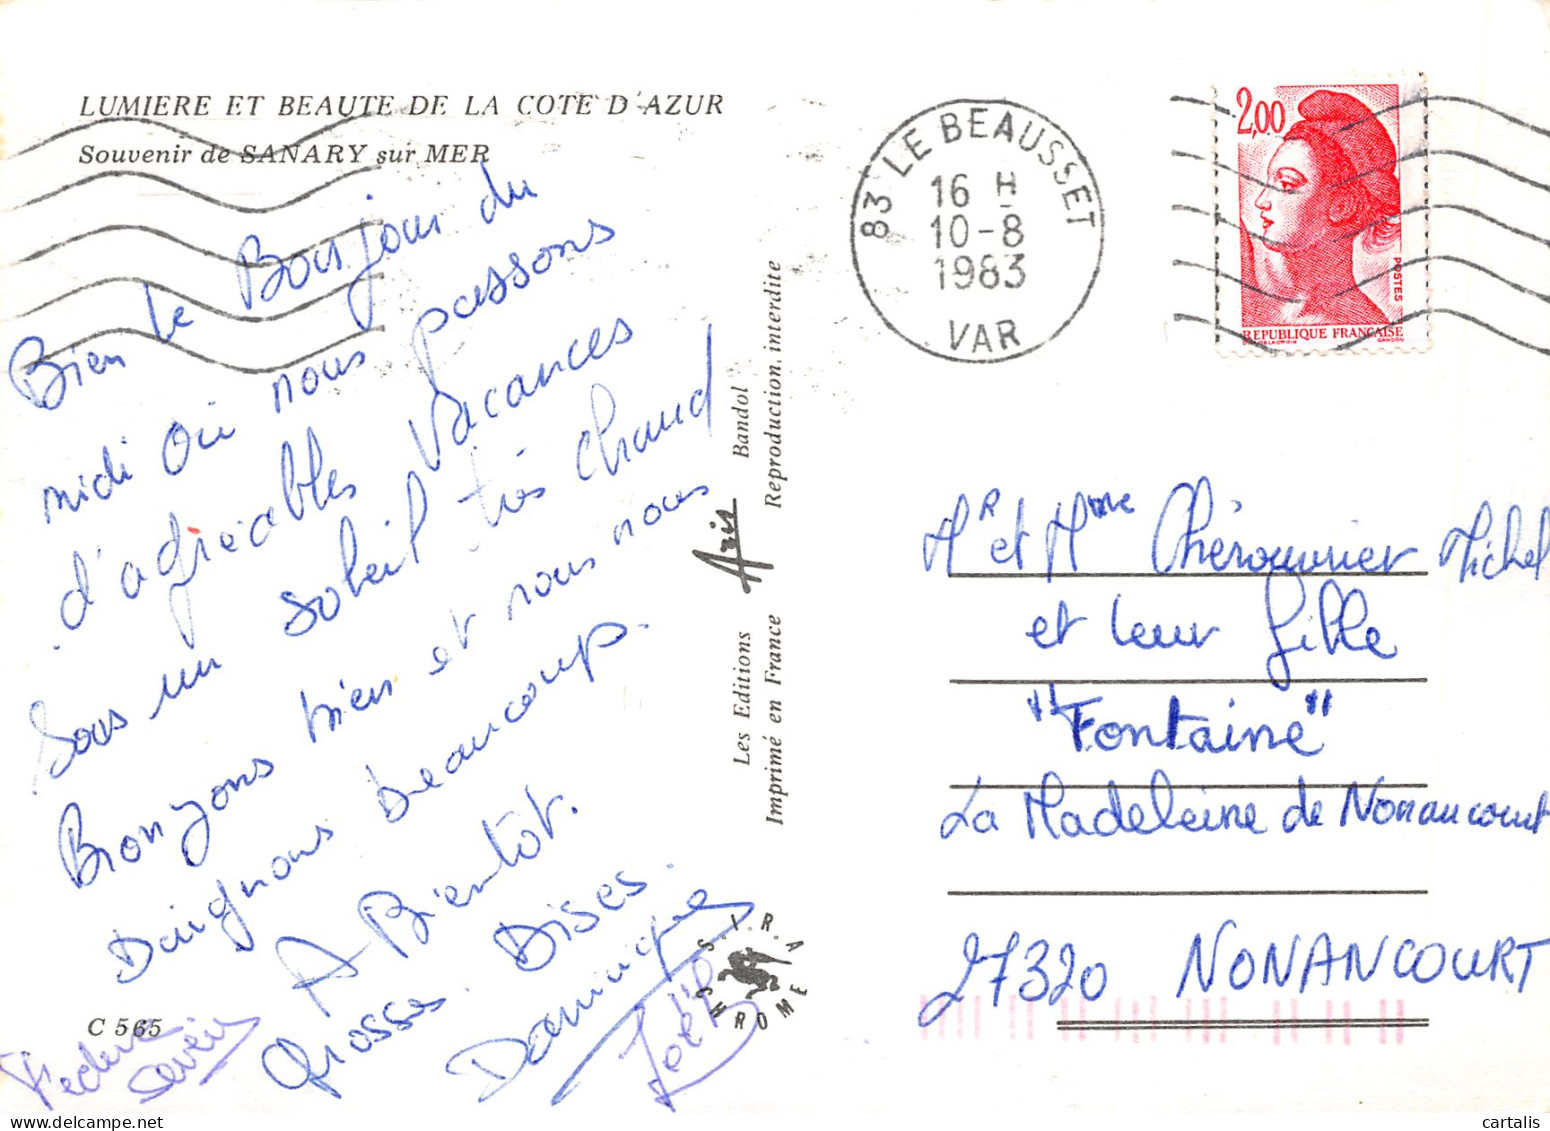 LUMIERE ET BEAUTE DE LA COTE D'AZUR
Souvenir de SANARY sur MER
Bien le Bonjour du
midi où nous passons
d'agréables vacances
Sous un soleil très chaud
Bronzons bien et nous nous
Baignons beaucoup.
A Bientôt.
Grosses Bises.
Dominique
Joël
C 565
Les Editions Aris Bandol
Imprimé en France Reproduction interdite
S.I.R.A
CHROME
83 LE BEAUSSET
16 H
10-8
1983
VAR
2,00
POSTES
REPUBLIQUE FRANÇAISE
DELACROIX GANDON
Mr et Mme Chérouvrier Michel
et leur fille
"Fontaine"
La Madeleine de Nonancourt
27320 NONANCOURT
cartalis